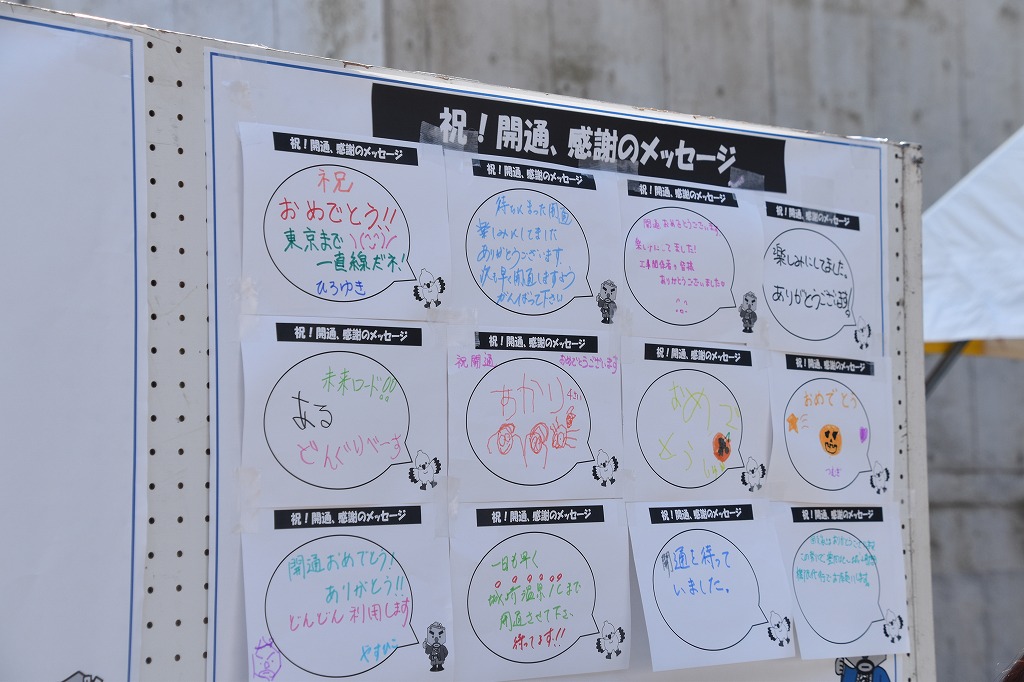 祝！開通、感謝のメッセージ
祝！開通、感謝のメッセージ
祝
おめでとう!!
東京まで
一直線だネ!
ひろゆき
祝！開通、感謝のメッセージ
待ちくたまった開通
楽しみにしてました
ありがとうございます
次も早く開通しますよう
がんばって下さい
祝！開通、感謝のメッセージ
開通おめでとうございます
楽しみにしてました!
工事関係者の皆様
ありがとうございました
祝！開通、感謝のメッセージ
楽しみにしてました。
ありがとうございます。
祝！開通、感謝のメッセージ
未来ロード!!
ある
どんぐりべーす
祝！開通、感謝のメッセージ
祝開通 おめでとうございます
あかり
4さい
祝！開通、感謝のメッセージ
おめで
とう
祝！開通、感謝のメッセージ
おめでとう
つむぎ
祝！開通、感謝のメッセージ
開通おめでとう!
ありがとう!!
どんどん利用します
やすひこ
祝！開通、感謝のメッセージ
一日も早く
城崎温泉ICまで
開通させて下さい
待ってます!!
祝！開通、感謝のメッセージ
開通を待って
いました。
祝！開通、感謝のメッセージ